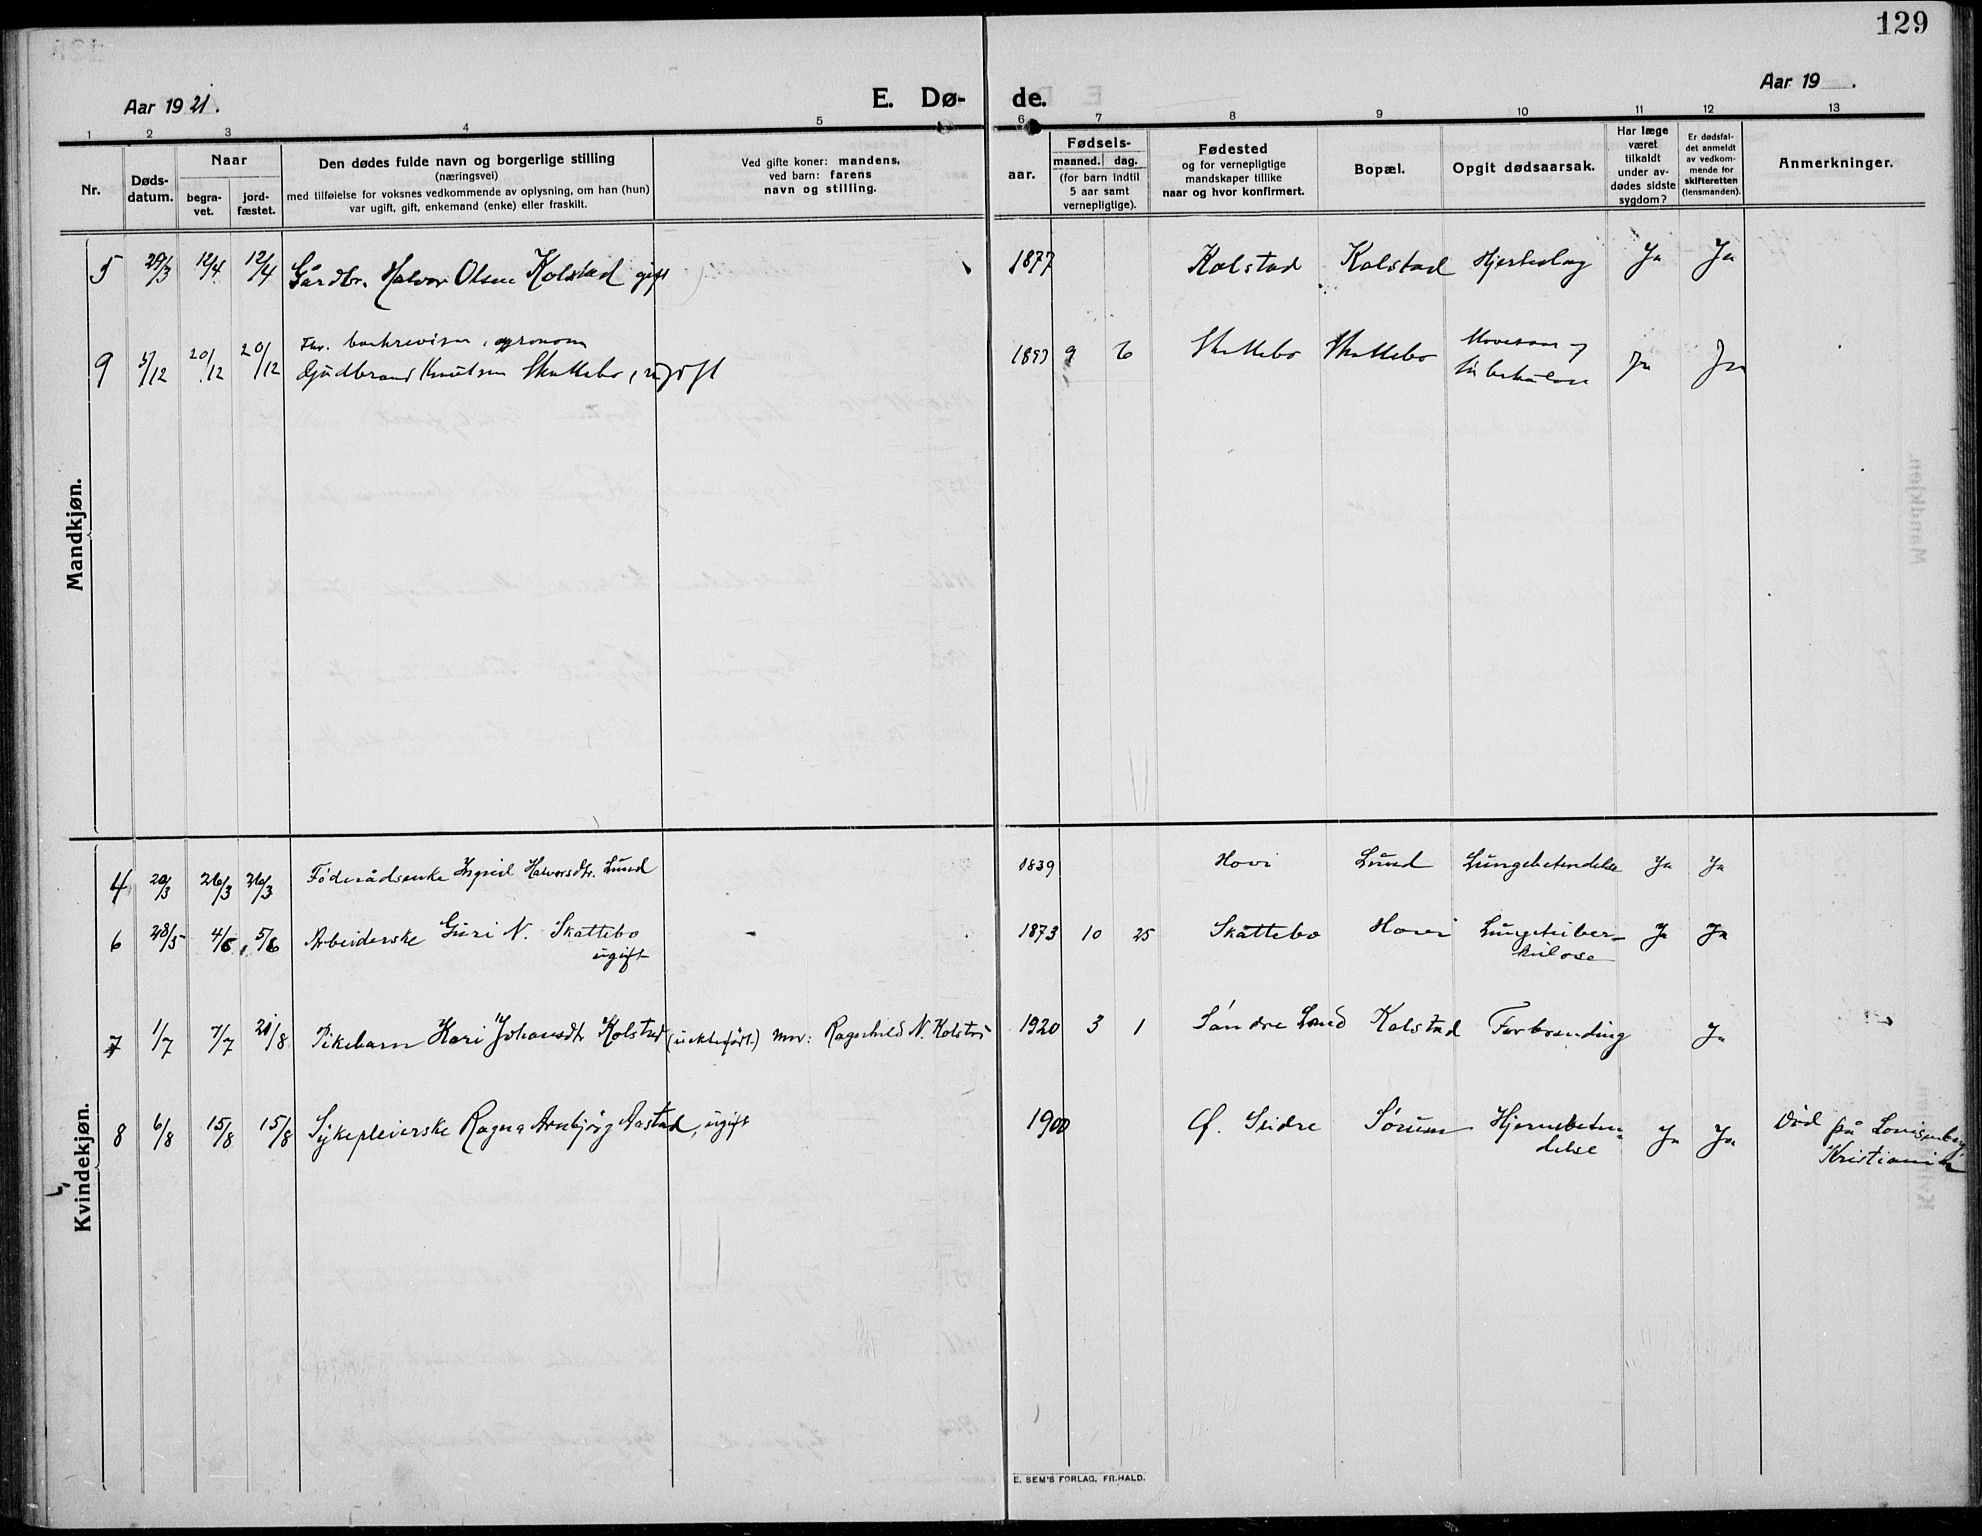 129
Aar 1921.
E. Dø-
de.
Aar 19   .
1 2 3 4 5 6 7 8 9 10 11 12 13
Nr.
Døds-
datum.
Naar
begra-
vet.
jord-
fæstet.
Den dødes fulde navn og borgerlige stilling
(næringsvei)
med tilføielse for voksnes vedkommende av oplysning, om han (hun)
var ugift, gift, enkemand (enke) eller fraskilt.
Ved gifte koner: mandens,
ved barn: farens
navn og stilling.
Fødsels-
aar.
maaned. dag.
(for barn indtil
5 aar samt
vernepligtige).
Fødested
og for vernepligtige
mandskaper tillike
naar og hvor konfirmert.
Bopæl.
Opgit dødsaarsak.
Har læge
været
tilkaldt
under av-
dødes sidste
sygdom?
Er dødsfal-
det anmeldt
av vedkom-
mende for
skifteretten
(lensmanden).
Anmerkninger.
Mandkjøn.
5 29/3 12/4 12/4 Gårdbr. Halvor Olsen Kolstad gift 1877 Kolstad Kolstad Hjerteslag Ja Ja
agronom
9 20/12 20/12 Gudbrand Knutsen Skattebo, ugift 9 6 Skattebo Skattebo Ja Ja
tuberkulose
Kvindekjøn.
4 20/3 26/3 26/3 Føderådsenke Ingrid Halvorsdtr. Lund 1839 Hovi Lund Lungebetendelse Ja Ja
6 28/5 4/6 5/6 Arbeiderske Guri N. Skattebo 1873 10 25 Skattebo Hovi Lungetuber- Ja Ja
ugift kulose
7 1/7 7/7 21/8 Pikebarn Kari Johansdtr Kolstad (uektefødt.) mor: Ragnhild N. Kolstad 1920 3 1 Søndre Lund Kolstad Forbrænding Ja
8 6/8 15/8 15/8 Sykepleierske Ragna Arnbjørg Aastad, ugift 1900 Ø. Slidre Sørum Hjernebeten- Ja Ja Død på Lovisenberg,
delse Kristiania
E. SEM'S FORLAG, FR.HALD.